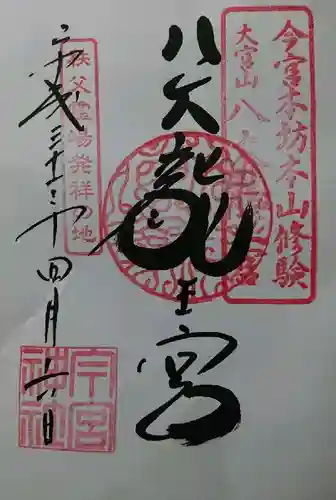 今宮本坊本山修験
大宮山八大
八大龍王宮
秩父霊場発祥地
平成三十一年四月六日
今宮神社